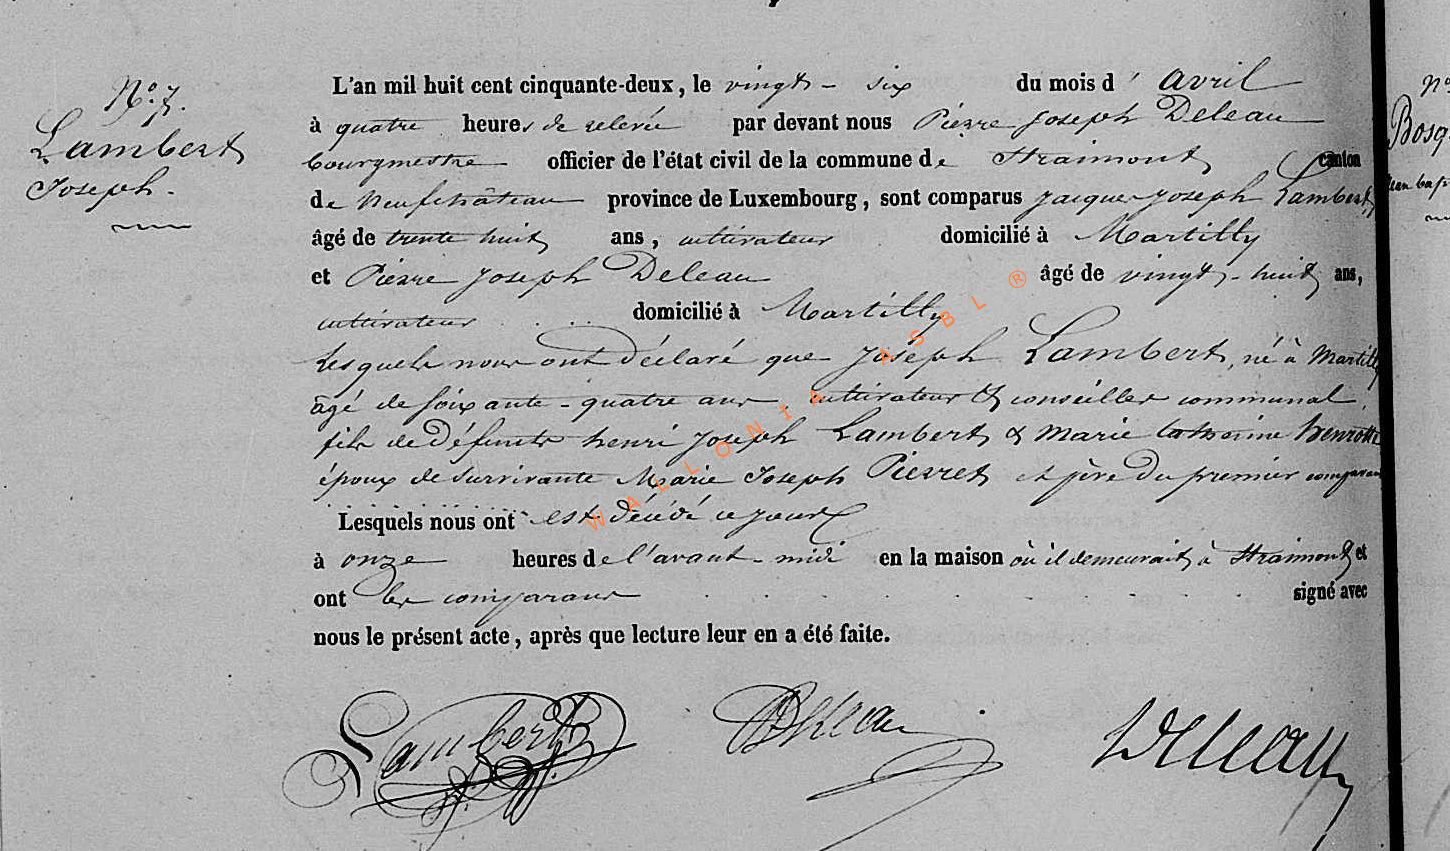 N°. 7.
Lambert
Joseph.
L'an mil huit cent cinquante-deux, le vingt-six du mois d'avril
à quatre heures de relevée par devant nous Pierre Joseph Deleau
bourgmestre officier de l'état civil de la commune de Straimont canton
de Neufchâteau province de Luxembourg, sont comparus Jacques Joseph Lambert
âgé de trente huit ans, cultivateur domicilié à Martilly
et Pierre Joseph Deleau âgé de vingt-huit ans,
cultivateur domicilié à Martilly
Lesquels nous ont déclaré que Joseph Lambert, né à Martilly
âgé de soixante-quatre ans, cultivateur & conseiller communal,
fils de défunts henri Joseph Lambert & Marie Catherine henrotte
époux de survivante Marie Joseph Pierret et père du premier comparant
Lesquels nous ont est décédé ce jour
à onze heures de l'avant-midi en la maison où il demeurait à Straimont et
ont les comparans signé avec
nous le présent acte, après que lecture leur en a été faite.
Lambert JJ.
Deleau
Deleau
WALLONIE ASBL ®
N°
Bosq
Jean bap